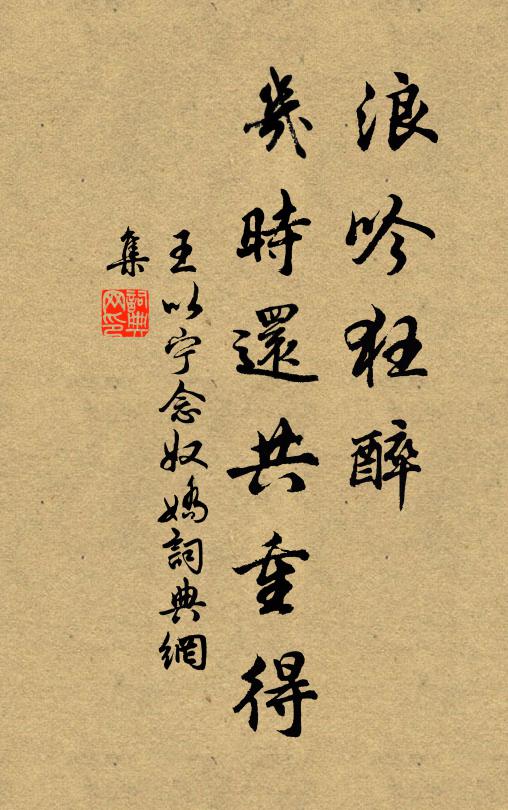 浪吟狂醉
幾時還共重得
王以宁念奴嬌詞典網
集
詞典网印